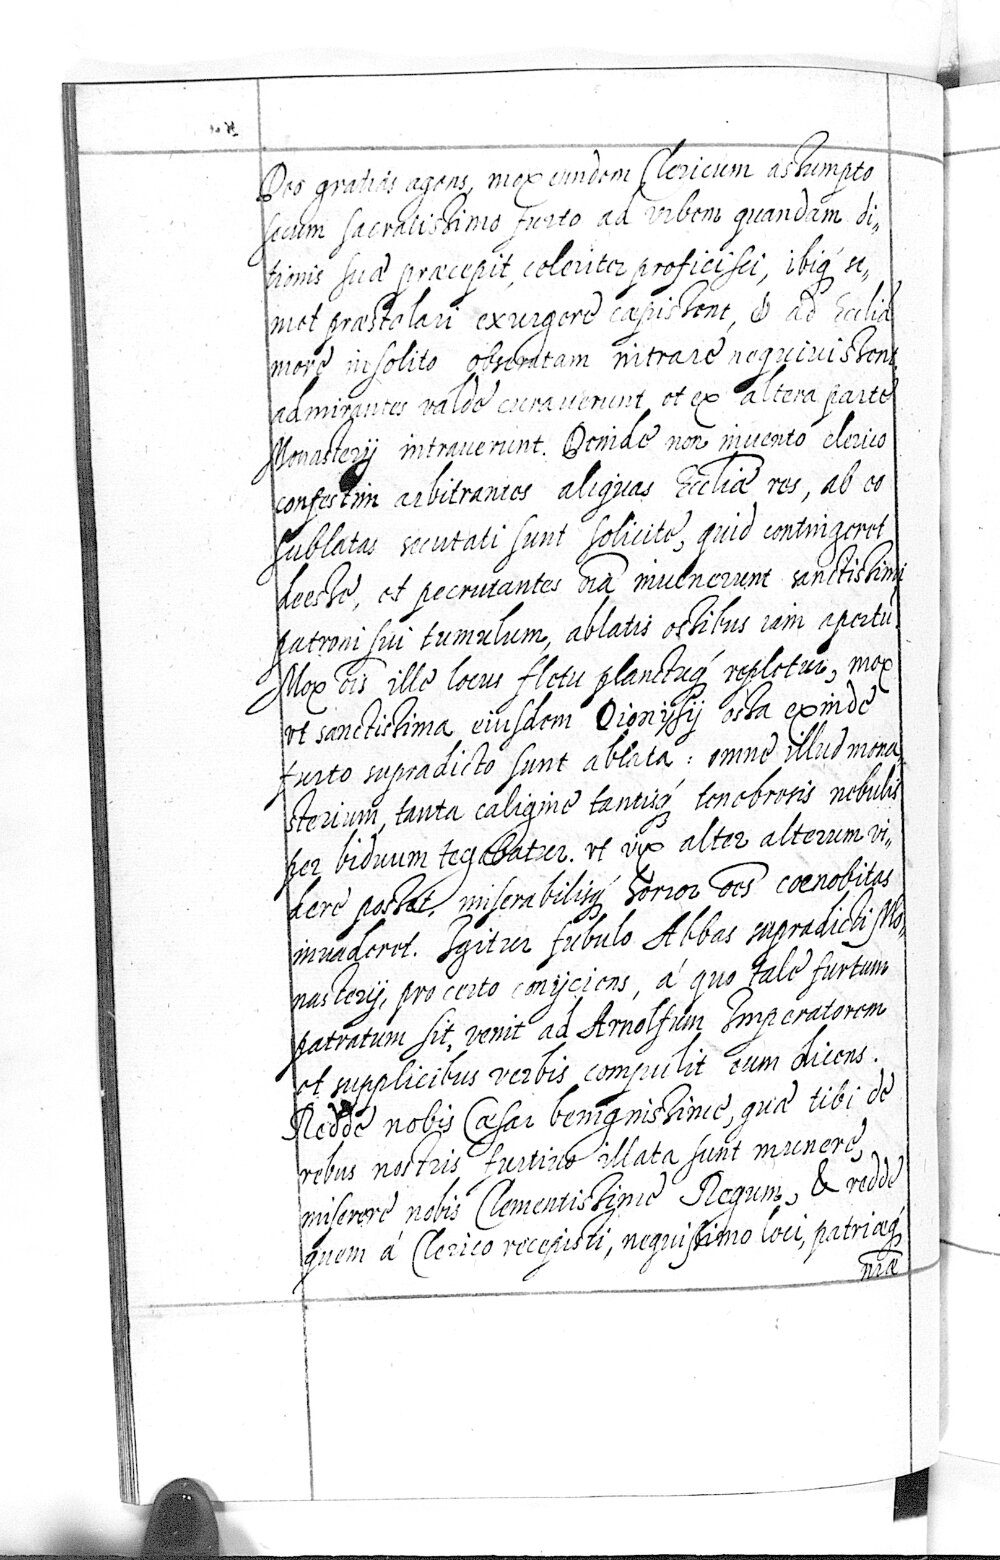 Deo gratias agens, mox eundem Clericum assumpto
secum sacratissimo furto ad vrbem quandam di„
tionis suæ præcepit celeriter proficisci, ibiq́ se„
met præstolari exurgere cæpissent, & ad Eccliã
more insolito obseratam intrare nequiuissent,
admirantes valde curauerunt et ex altera parte
Monasterij intrauerunt. Deinde non inuento clerico
confestim arbitrantes aliquas Eccliæ res, ab eo
sublatas secutati sunt solicite, quid contingeret
deesse, et pecrutantes oĩa inuenerunt sanctissimi
patroni sui tumulum, ablatis ossibus iam apertũ.
Mox oĩs ille locus fletu planctuq́ repletur, mox
vt sanctissima eiusdem Dionijsij ossa exinde
furto supradicto sunt ablata: omne illud mona„
sterium, tanta caligine tantisq́ tenebrosis nebulis
per biduum tegebatur. vt vix alter alterum vi„
dere posset, miserabilisq́ horror oẽs coenobitas
inuaderet. Igitur fubulo Abbas supradicti Mo„
nasterij, pro certo conijciens, á quo tale furtum
patratum sit, venit ad Arnolfum Imperatorem
et supplicibus verbis compulit eum dicens.
Redde nobis Cæsar benignissime, quæ tibi de
rebus nostris furtiuo illata sunt munere,
miserere nobis Clementissime Regum, & redde
quem á Clerico recepisti, nequissimo loci, patriæq́
nr̃æ